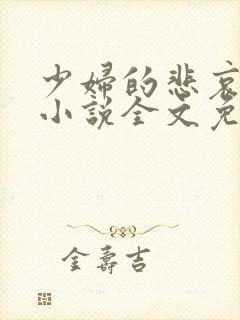 少婦的悲哀
小說全文免
金壽吉